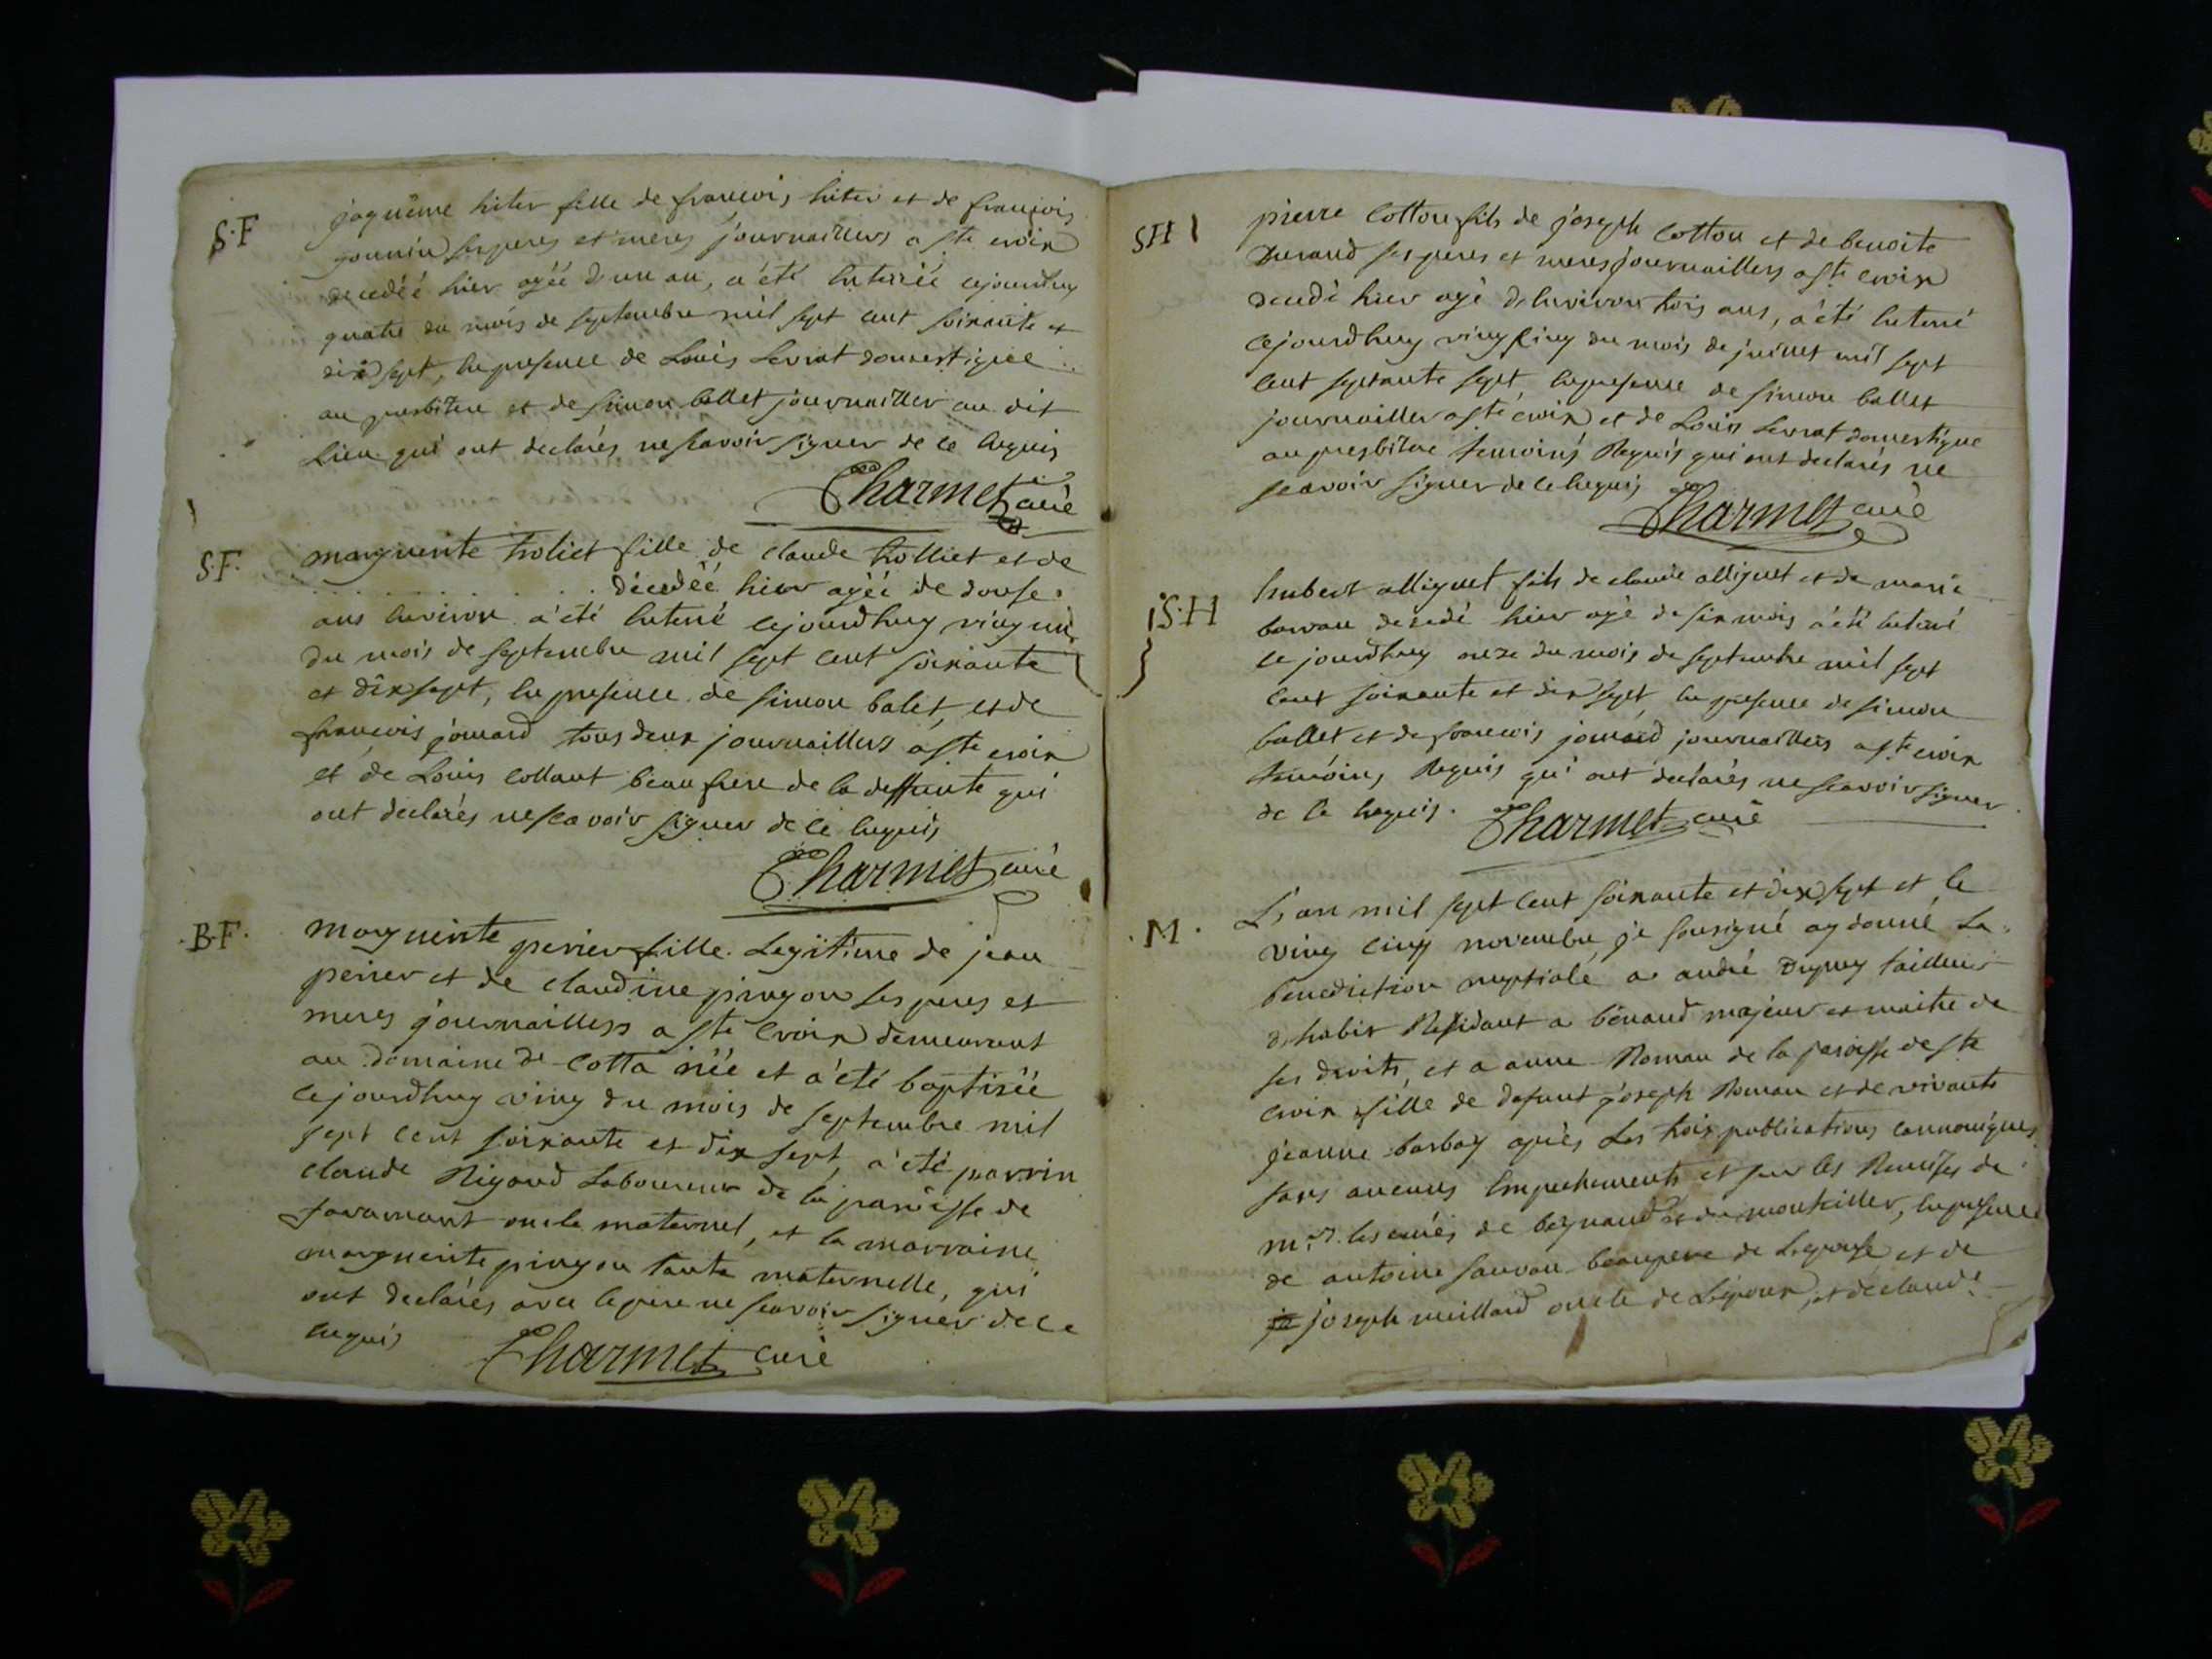 S.F
jaquême hiter fille de francois hiter et de francois
gounin ses peres et meres journailliers a ste croix
decedéé hier agéé d'un an, a été enterréé cejourdhuy
quatre du mois de septembre mil sept cent soixante et
dix sept, en presence de Louis Levrat domestique
au presbitere et de simon ballet journaillier au dit
Lieu qui ont declarés ne scavoir signer de ce enquis
Charmet curé
S.F.
marguerite troliet fille de claude trolliet et de
. . . . . . . décedéé hier agéé de douse
ans environ a été enterré cejourdhuy ving un
du mois de septembre mil sept cent soixante
et dix sept, en presence de simon balet, et de
francois jomard tous deux journailliers a ste croix
et de Louis collant beau frere de la deffunte qui
ont declarés ne sca voir signer de ce enquis
Charmet curé
B.F.
marguerite perier fille Legitime de jean
perier et de claudine pingon ses peres et
meres journailliers a ste Croix demeurant
au domaine de Cotta néé et a été baptiséé
cejourdhuy ving du mois de septembre mil
sept cent soixante et dix sept, a été parrin
claude Rigaud Laboureur de la paroisse de
favarnant oncle maternel, et la marraine
marguerite pingon tante maternelle, qui
ont declarés avec le pere ne scavoir signer de ce
enquis Charmet curé
SH
pierre Cotton fils de joseph cotton et de benoite
Durand ses peres et meres journailliers a ste croix
decedé hier agé d'environ trois ans, a été enterré
cejourdhuy ving cinq du mois de juillet mil sept
cent septante sept, en presence de simon ballet
journaillier a ste croix et de Louis Levrat domestique
au presbitere temoins Requis qui ont declarés ne
scavoir signer de ce enquis Charmet curé
S.H
hubert alliguet fils de claude alliguet et de marie
barvau decedé hier agé de six mois a été enterré
ce jourdhuy onze du mois de septembre mil sept
cent soixante et dix sept, en presence de simon
ballet et de francois jomard journailliers a ste croix
temoins Requis qui ont declarés ne scavoir signer
de ce enquis. Charmet curé
M.
L'an mil sept cent soixante et dix sept et le
ving cinq novembre je sousigné ay donné La
benediction nuptiale a andré Dupuy tailleur
d'habit Residant a bénaud majeur et maitre de
ses droits, et a anne Roman de la paroisse de ste
croix fille de defunt joseph Roman et de vivante
jeanne barbay après Les trois publications cannoniques
sans aucuns Empechements et sur les Remises de
mrs. les curés de beynaud et du montellier, en presence
de antoine sauvau beaupere de L'epouse et de
joseph meillard oncle de L'epoux, et de claude